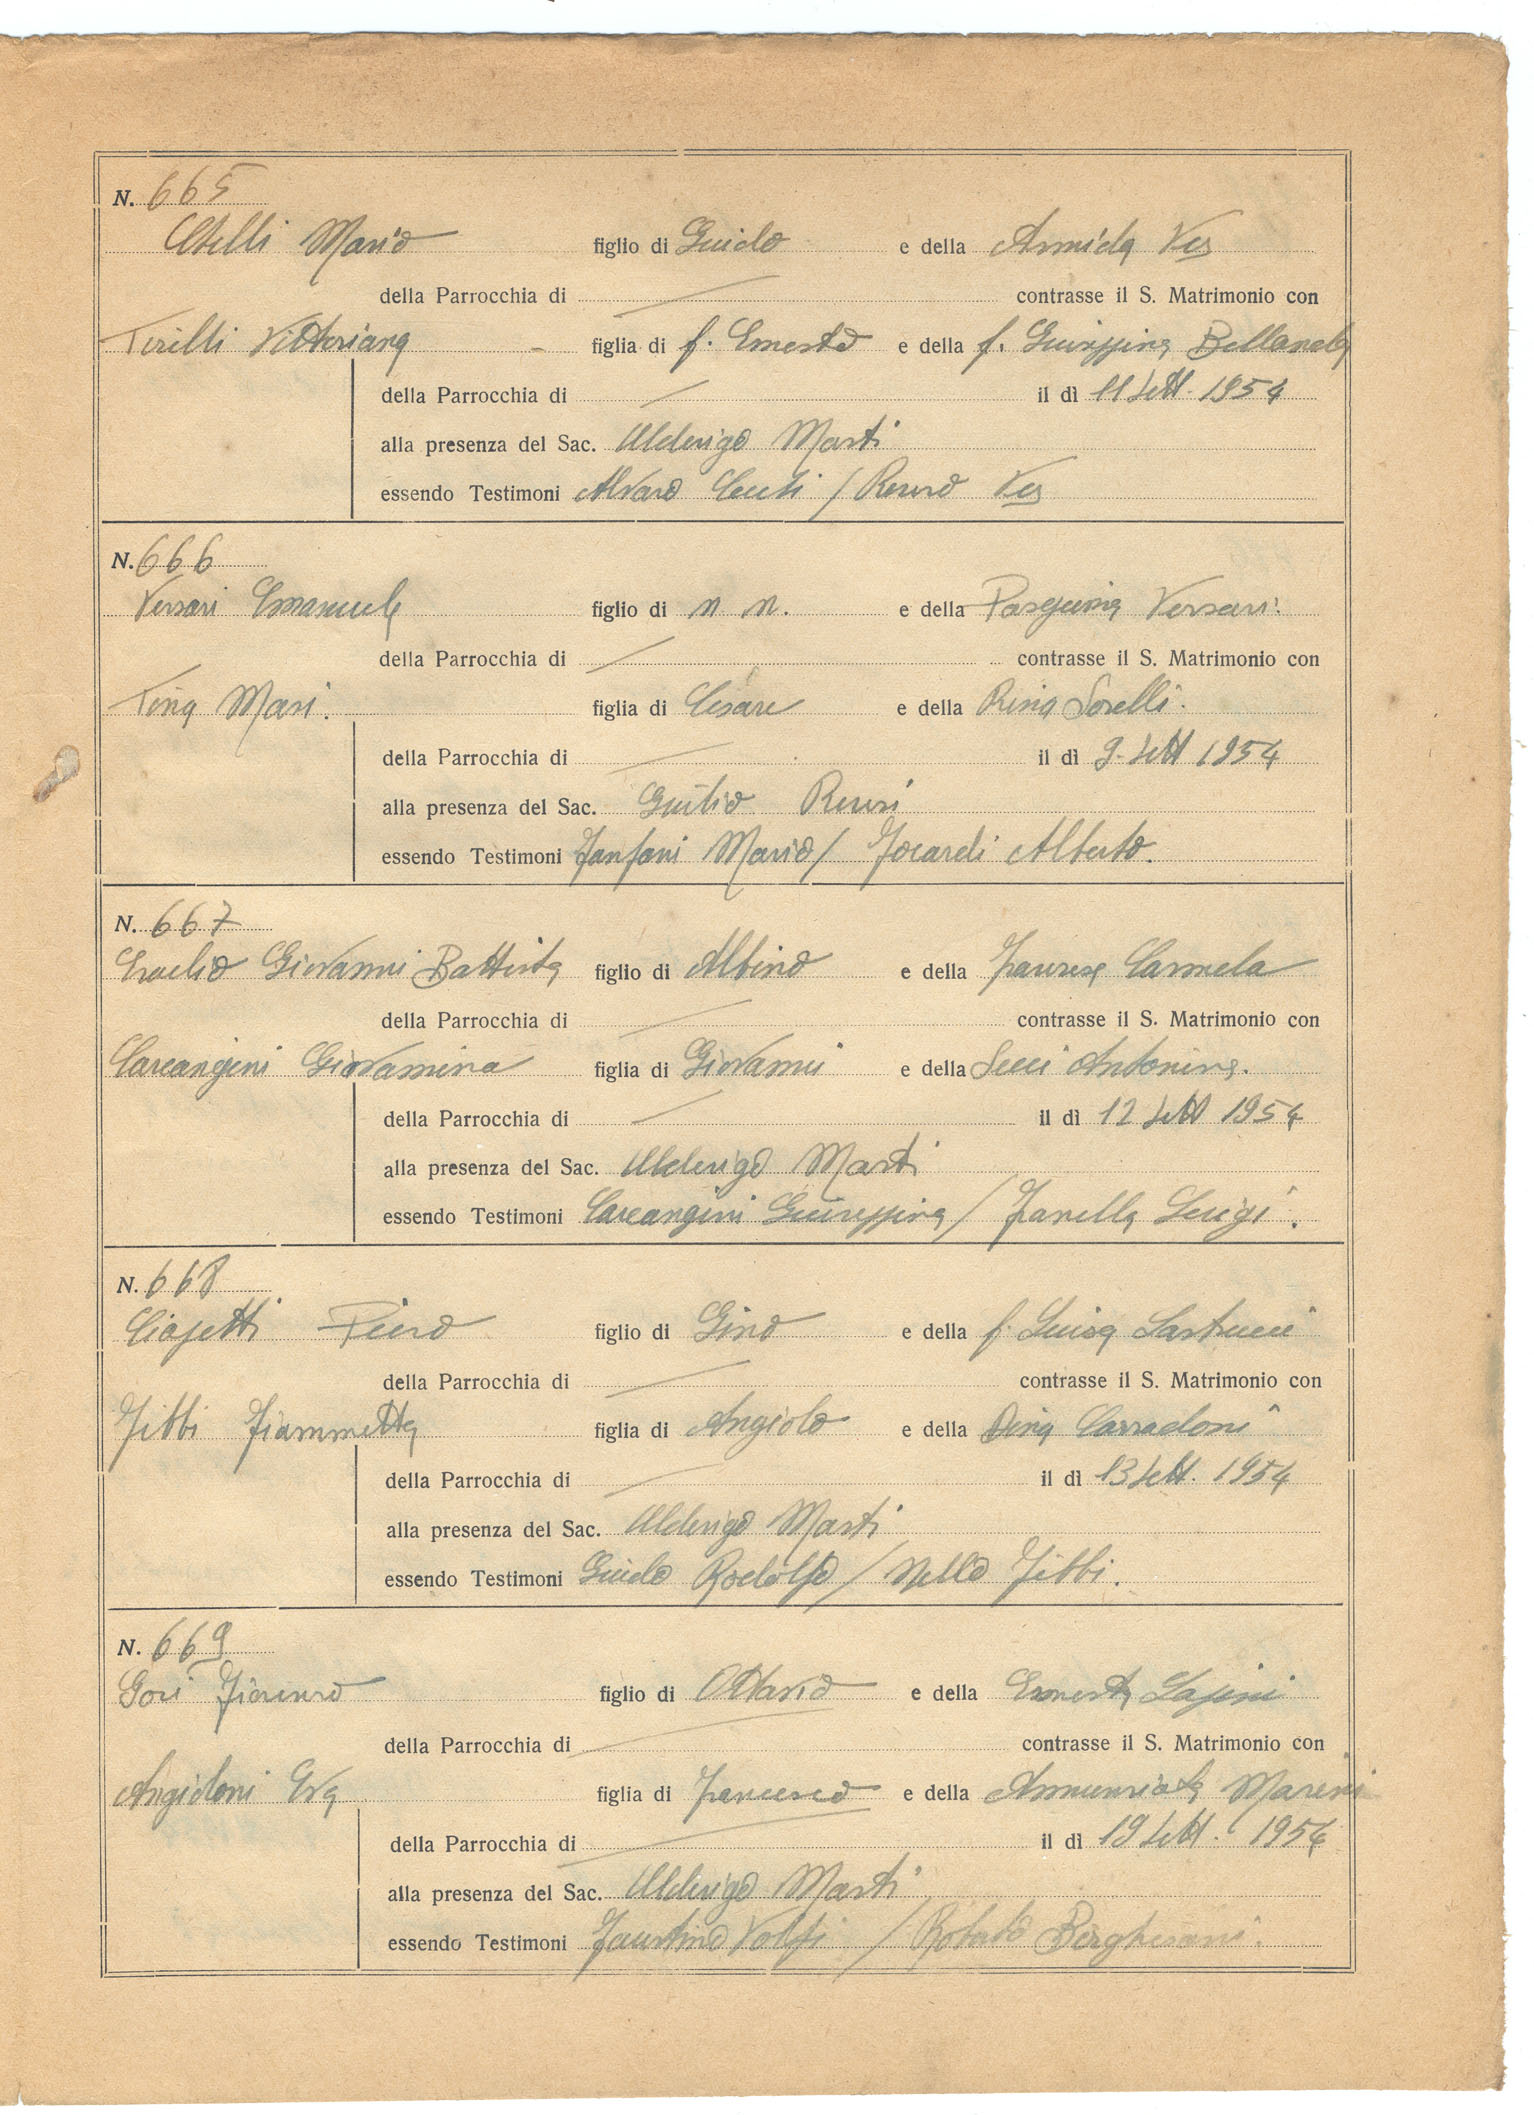 N. 665
Mario figlio di Guido e della Armida
della Parrocchia di contrasse il S. Matrimonio con
Tirilli Vittoriana figlia di f. Ernesto e della f. Giuseppina
della Parrocchia di il dì 11 Sett. 1954
alla presenza del Sac. Alderigo Masti
essendo Testimoni Alvaro /
N. 666
Versari Emanuele figlio di n n. e della Pasquina Versari.
della Parrocchia di contrasse il S. Matrimonio con
Tina Masi. figlia di Cesare e della Rina Sorelli.
della Parrocchia di il dì 9. Sett 1954
alla presenza del Sac. Giulio Renzi
essendo Testimoni Fanfani Mario / Focardi Alberto.
N. 667
Giovanni Battista figlio di Albino e della Carmela
della Parrocchia di contrasse il S. Matrimonio con
Carcangini Giovannina figlia di Giovanni e della Secci Antonina.
della Parrocchia di il dì 12 Sett 1954
alla presenza del Sac. Alderigo Masti
essendo Testimoni Carcangini Giuseppina / Fanella Luigi.
N. 668
Ciapetti Piero figlio di Gino e della f. Luisa Lastrucci
della Parrocchia di contrasse il S. Matrimonio con
Fibbi Fiammetta figlia di Angiolo e della Dina Corradoni
della Parrocchia di il dì 13 Sett. 1954
alla presenza del Sac. Alderigo Masti
essendo Testimoni Guido Rodolfo / Nello Fibbi.
N. 669
Gori Fiorenzo figlio di Ottavio e della Ernesta Lapini
della Parrocchia di contrasse il S. Matrimonio con
Angioloni Eva figlia di Francesco e della Annunziata Marini
della Parrocchia di il dì 19 Sett. 1954
alla presenza del Sac. Alderigo Masti
essendo Testimoni Faustino Volpi / Roberto Berghesani.